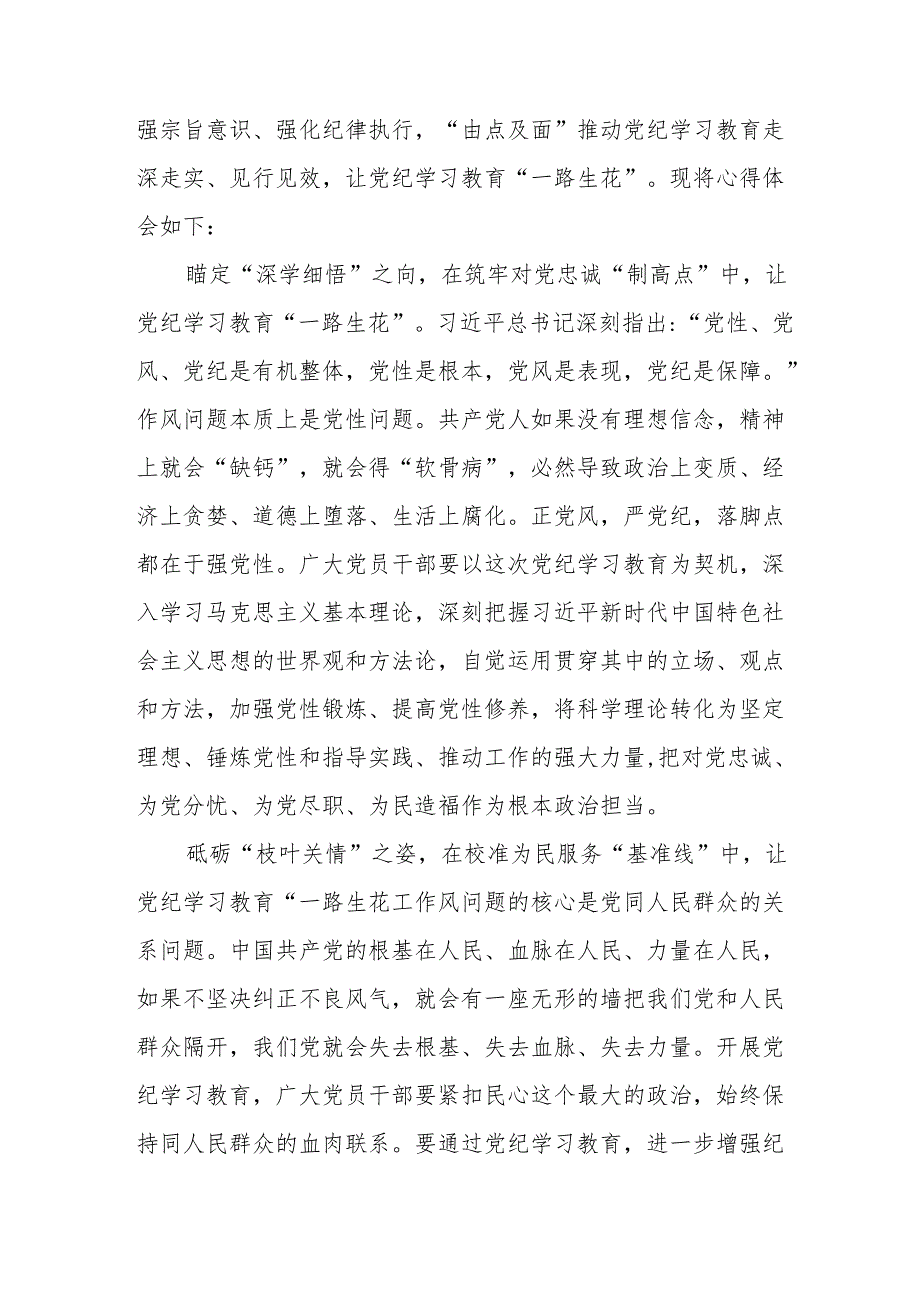 强宗旨意识、强化纪律执行，“由点及面”推动党纪学习教育走
深走实、见行见效，让党纪学习教育“一路生花”。现将心得体
会如下：
瞄定“深学细悟”之向，在筑牢对党忠诚“制高点”中，让
党纪学习教育“一路生花”。习近平总书记深刻指出:“党性、党
风、党纪是有机整体，党性是根本，党风是表现，党纪是保障。”
作风问题本质上是党性问题。共产党人如果没有理想信念，精神
上就会“缺钙”，就会得“软骨病”，必然导致政治上变质、经
济上贪婪、道德上堕落、生活上腐化。正党风，严党纪，落脚点
都在于强党性。广大党员干部要以这次党纪学习教育为契机，深
入学习马克思主义基本理论，深刻把握习近平新时代中国特色社
会主义思想的世界观和方法论，自觉运用贯穿其中的立场、观点
和方法，加强党性锻炼、提高党性修养，将科学理论转化为坚定
理想、锤炼党性和指导实践、推动工作的强大力量,把对党忠诚、
为党分忧、为党尽职、为民造福作为根本政治担当。
砥砺“枝叶关情”之姿，在校准为民服务“基准线”中，让
党纪学习教育“一路生花工作风问题的核心是党同人民群众的关
系问题。中国共产党的根基在人民、血脉在人民、力量在人民，
如果不坚决纠正不良风气，就会有一座无形的墙把我们党和人民
群众隔开，我们党就会失去根基、失去血脉、失去力量。开展党
纪学习教育，广大党员干部要紧扣民心这个最大的政治，始终保
持同人民群众的血肉联系。要通过党纪学习教育，进一步增强纪